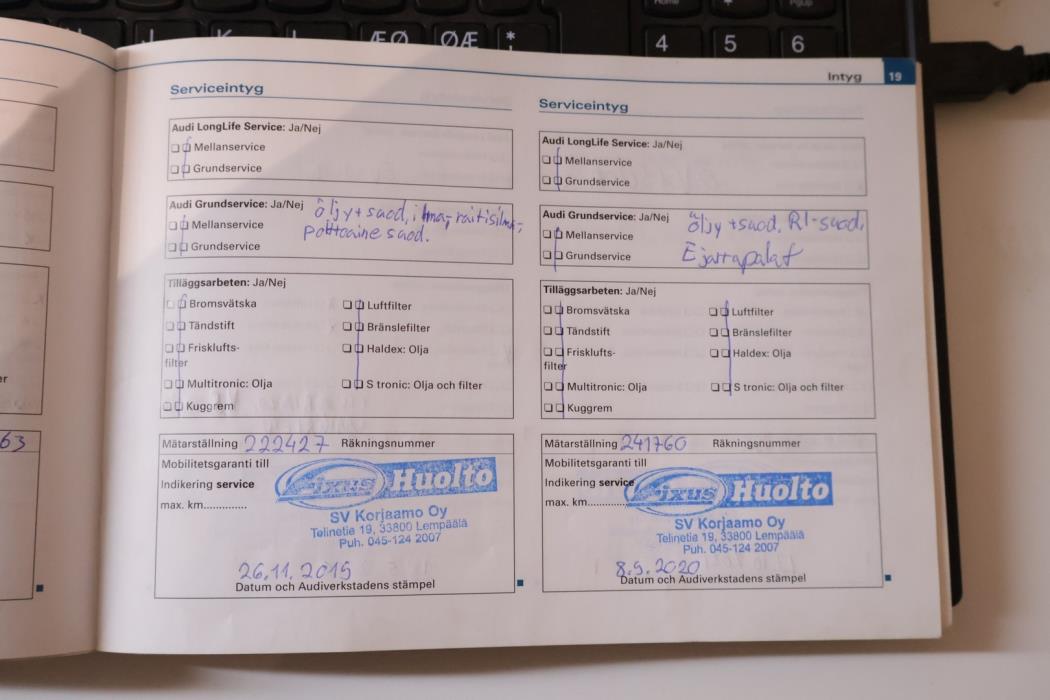 ÆØ ØÆ *
4 5 6
Intyg 19
Serviceintyg
Audi LongLife Service: Ja/Nej
Mellanservice
Grundservice
Audi Grundservice: Ja/Nej öljy+suod, ilma-, raitisilma-,
Mellanservice polttoaine suod.
Grundservice
Tilläggsarbeten: Ja/Nej
Bromsvätska Luftfilter
Tändstift Bränslefilter
Frisklufts- Haldex: Olja
filter
Multitronic: Olja S tronic: Olja och filter
Kuggrem
Mätarställning 222427 Räkningsnummer
Mobilitetsgaranti till
Indikering service
max. km.............
Fixus Huolto
SV Korjaamo Oy
Telinetie 19, 33800 Lempäälä
Puh. 045-124 2007
26.11.2019
Datum och Audiverkstadens stämpel
Serviceintyg
Audi LongLife Service: Ja/Nej
Mellanservice
Grundservice
Audi Grundservice: Ja/Nej öljy +suod, RI-suod,
Mellanservice
Grundservice Ejarrupalat
Tilläggsarbeten: Ja/Nej
Bromsvätska Luftfilter
Tändstift Bränslefilter
Frisklufts- Haldex: Olja
filter
Multitronic: Olja S tronic: Olja och filter
Kuggrem
Mätarställning 241760 Räkningsnummer
Mobilitetsgaranti till
Indikering service
max. km.............
Fixus Huolto
SV Korjaamo Oy
Telinetie 19, 33800 Lempäälä
Puh. 045-124 2007
8.9.2020
Datum och Audiverkstadens stämpel
63